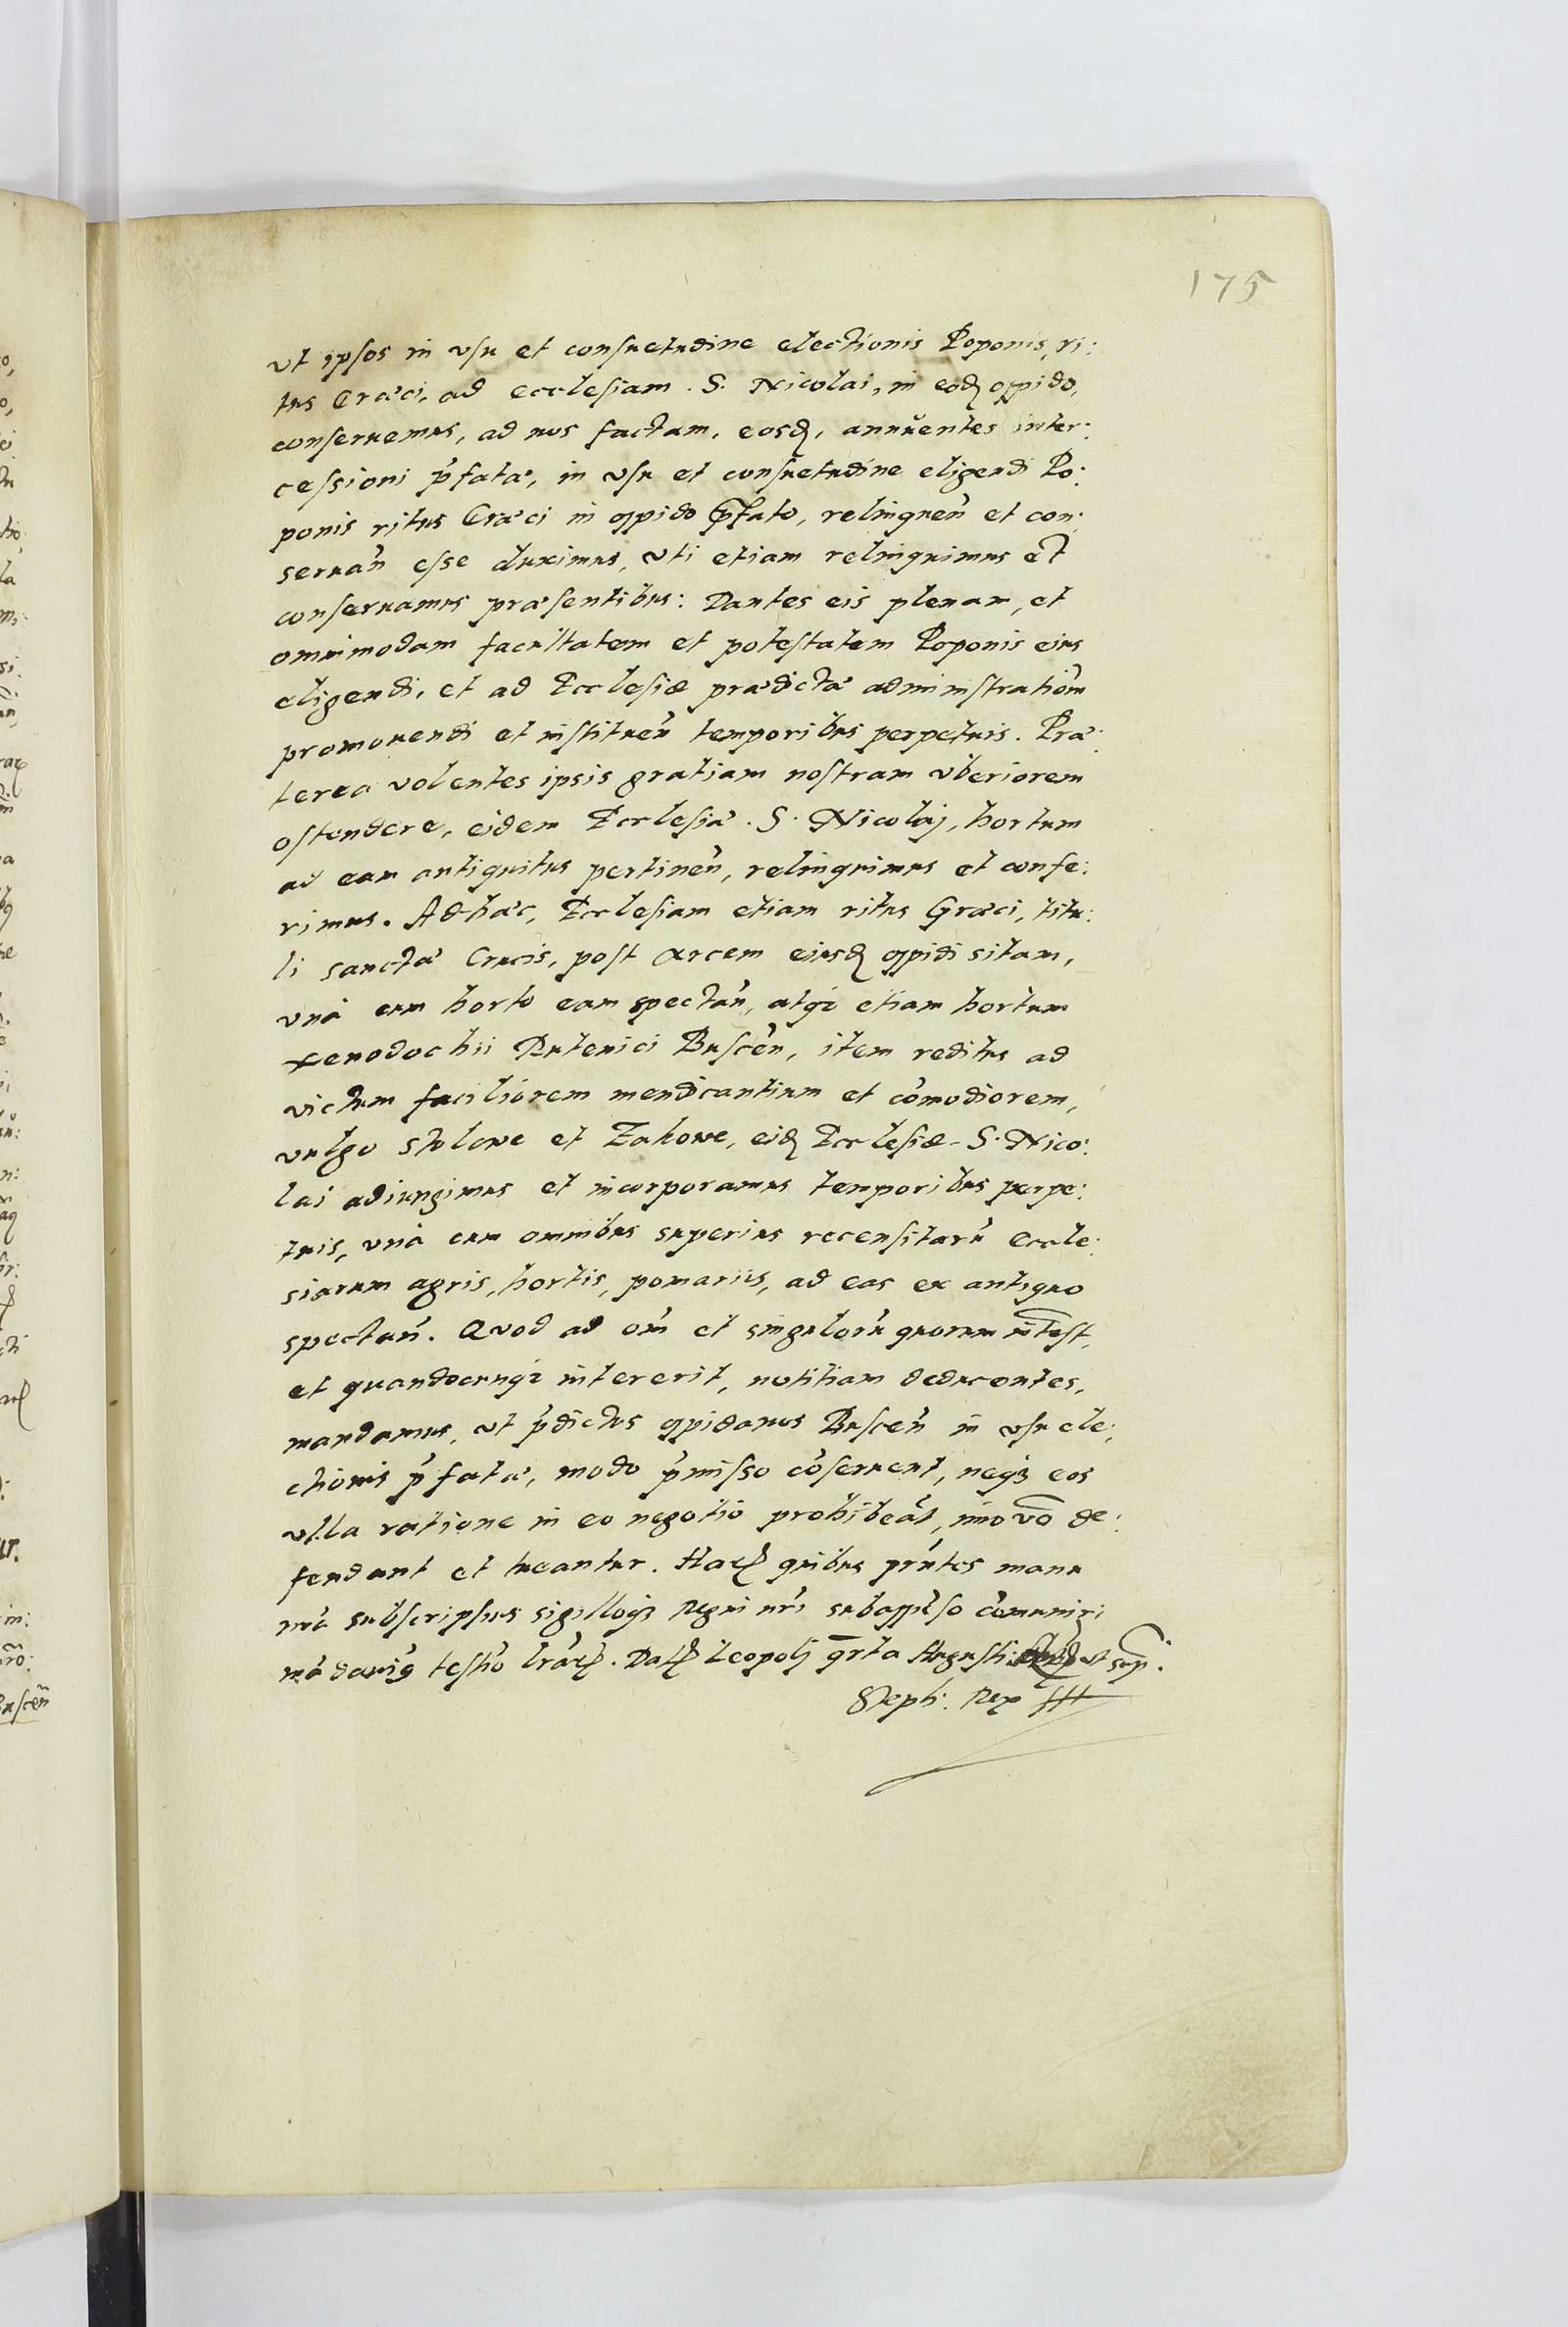 175
vt ipsos in vsu et consuetudine electionis Poponis, ri:
tus Græci, ad ecclesiam . S. Nicolai, in eodē oppido,
conseruemus, ad nos factam, eosdē, annuentes inter:
cessioni p̄fatæ, in vsu et consuetudine eligendi Po:
ponis ritus Græci in oppido p̄fato, relinquen̄ et con:
seruan̄ esse duximus, vti etiam relinquimus et
conseruamus præsentibus: Dantes eis plenam, et
omnimodam facultatem et potestatem Poponis eius
eligendi, et ad Ecclesiæ prædictæ administratiōm
promouendi et instituen̄ temporibus perpetuis. Præ:
terea volentes ipsis gratiam nostram vberiorem
ostendere, eidem Ecclesiæ . S. Nicolaj, hortum
ad eam antiquitus pertinen̄, relinquimus et confe:
rimus. Ad hæc, Ecclesiam etiam ritus Græci, titu:
li sanctæ Crucis, post arcem eiusdē oppidi sitam,
vnà cum horto eam spectan̄, atqȝ etiam hortum
xenodochii Rutenici Buscen̄, item reditus ad
victum faciliorem mendicantium et com̄odiorem,
vulgo Stolowe et Zakowe, eidē Ecclesiæ . S. Nico:
lai adiungimus et incorporamus temporibus perpe:
tuis, vnà cum omnibus superius recensitarū Eccle:
siarum agris, hortis, pomariis, ad eas ex antiquo
spectan̄. Quod ad om̄ et singulorū quorum intest,
et quandocunqȝ intererit, notitiam deducentes,
mandamus, vt p̄dictos oppidanos Buscen̄ in vsu ele:
ctionis p̄fatæ, modo p̄misso cōseruent, neqȝ eos
vlla ratione in eo negotio prohibeāt, imo vō de:
fendant et tueantur. Harū quibus prn̄tes manu
nr̄a subscripsims sigilloqȝ Regni nr̄i subappēso com̄uniri
mādauim̄ testio lrārū. Datū Leopolj qrta Augusti vt sup̄.
Steph. Rex sst